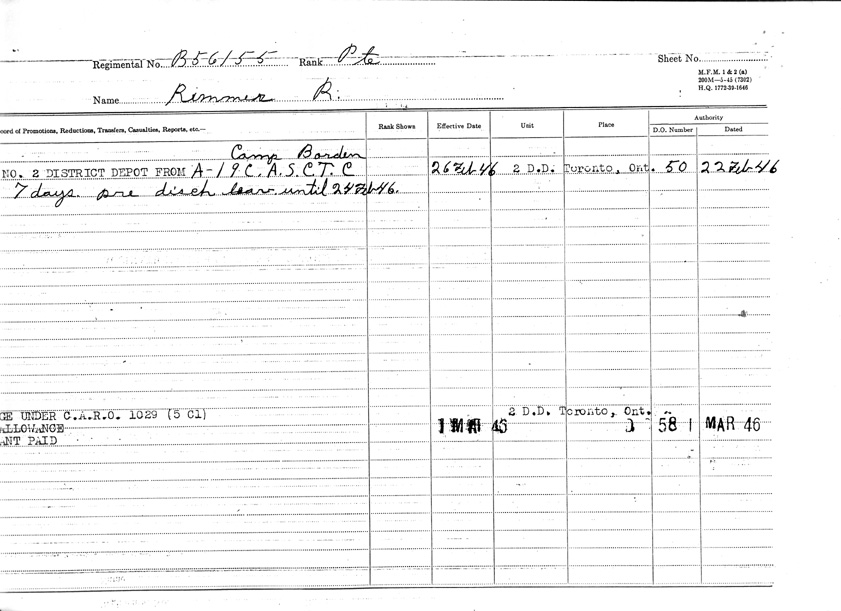 Regimental No. B56155 Rank Pte Sheet No.
M.F.M. 1 & 2 (a)
200M—5-45 (7302)
H.Q. 1772-39-1646
Name Rimmer R.
ord of Promotions, Reductions, Transfers, Casualties, Reports, etc.— Rank Shows Effective Date Unit Place Authority
D.O. Number Dated
Camp Borden
NO. 2 DISTRICT DEPOT FROM A-19 C.A.S.C.T.C 26 Feb 46 2 D.D. Toronto, Ont. 50 22 Feb 46
7 days pre disch leave until 24 Feb 46.
GE UNDER C.A.R.O. 1029 (5 Cl) 2 D.D. Toronto, Ont.
ALLOWANCE 1 MAR 46 58 1 MAR 46
ANT PAID